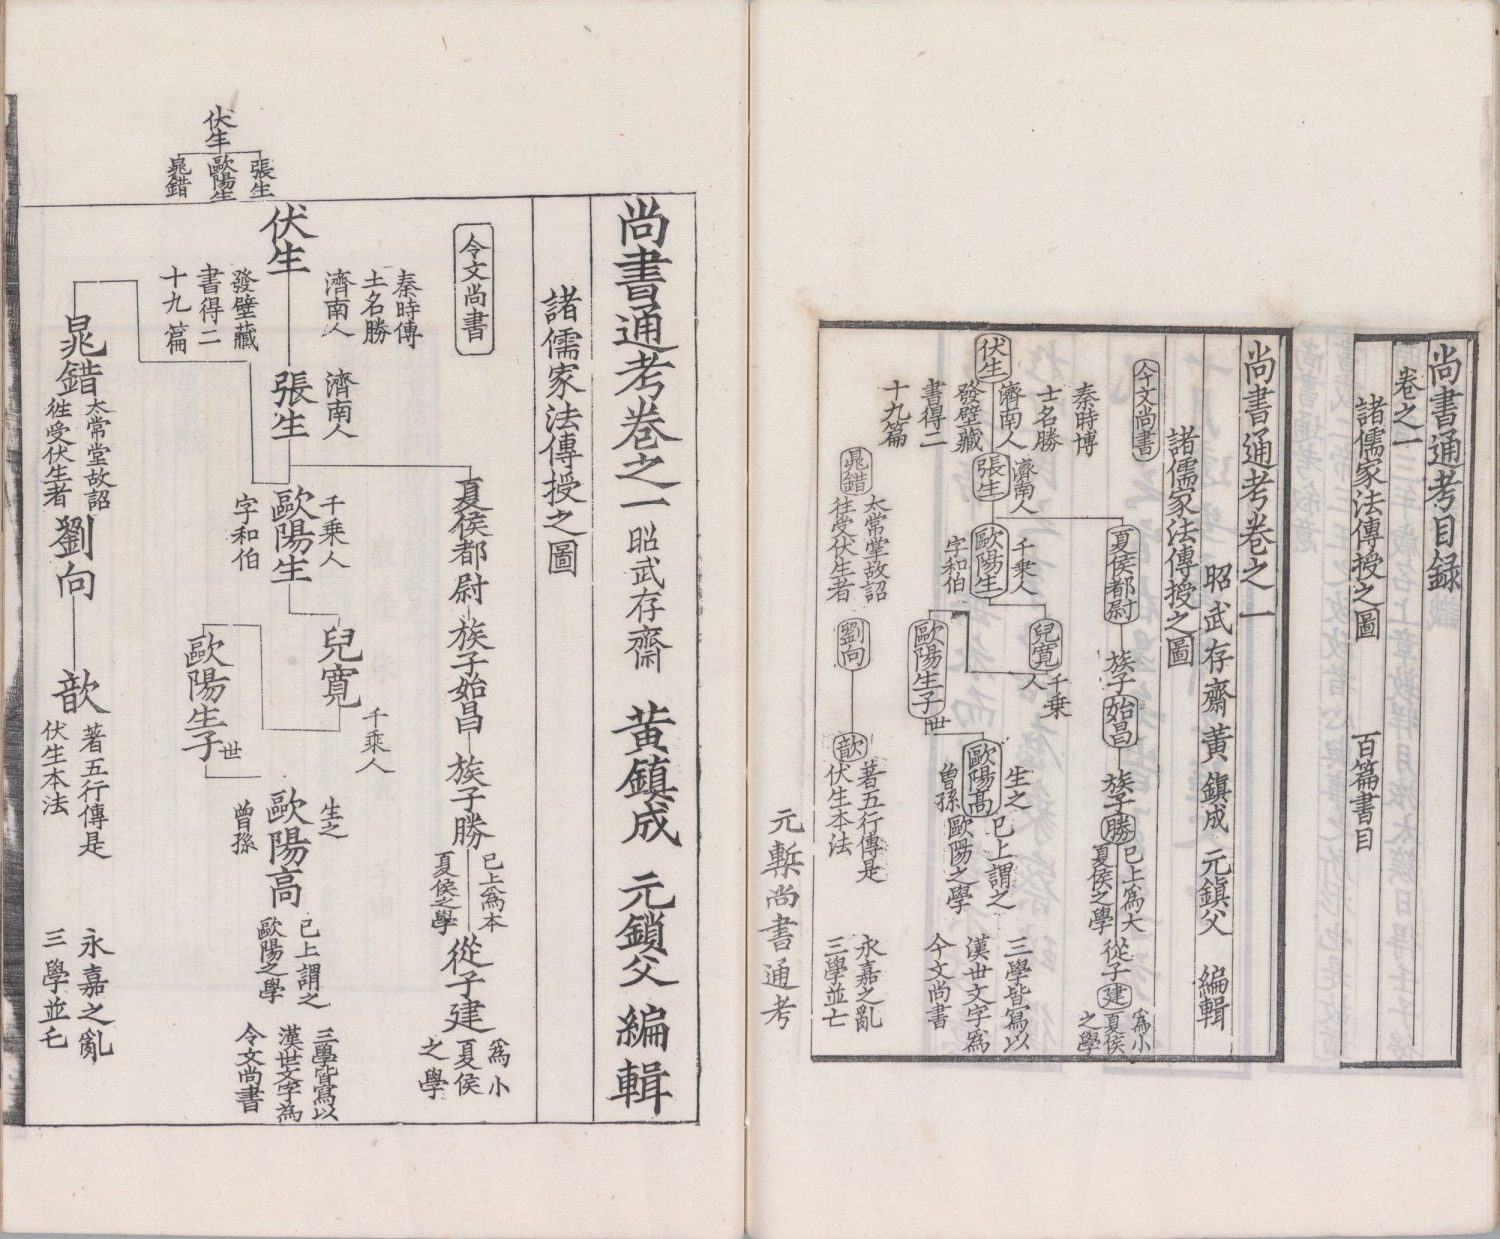 尚書通考目録
卷之一
諸儒家法傳授之圖
百篇書目
尚書通考卷之一
昭武存齋黃鎮成 元鎮父 編輯
諸儒家法傳授之圖
今文尚書
夏侯都尉
族子始昌
族子勝
已上爲大
夏侯之學
從子建
爲小
夏侯
之學
伏生
秦時博
士名勝
濟南人
發壁藏
書得二
十九篇
濟南人
張生
千乗人
歐陽生
字和伯
兒寬
千乗
人
歐陽生子
世
生之
歐陽髙
曽孫
已上謂之
歐陽之學
三學皆寫以
漢世文字爲
今文尚書
鼂錯
太常掌故詔
往受伏生者
劉向
歆
著五行傳是
伏生本法
永嘉之亂
三學並亡
元槧尚書通考
尚書通考卷之一 昭武存齋 黃鎮成 元鎖父 編輯
諸儒家法傳授之圖
令文尚書
夏侯都尉
族子始昌
族子勝
已上爲本
夏侯之學
從子建
爲小
夏侯
之學
伏生
秦時傳
士名勝
濟南人
發壁藏
書得二
十九篇
濟南人
張生
千乗人
歐陽生
字和伯
兒寬
千乗人
歐陽生子
世
生之
歐陽高
曽孫
已上謂之
歐陽之學
三學皆寫以
漢世文字為
今文尚書
晁錯
太常堂故詔
徃受伏生者
劉向
歆
著五行傳是
伏生本法
永嘉之亂
三學並乇
伏生
張生
歐陽生
晁錯